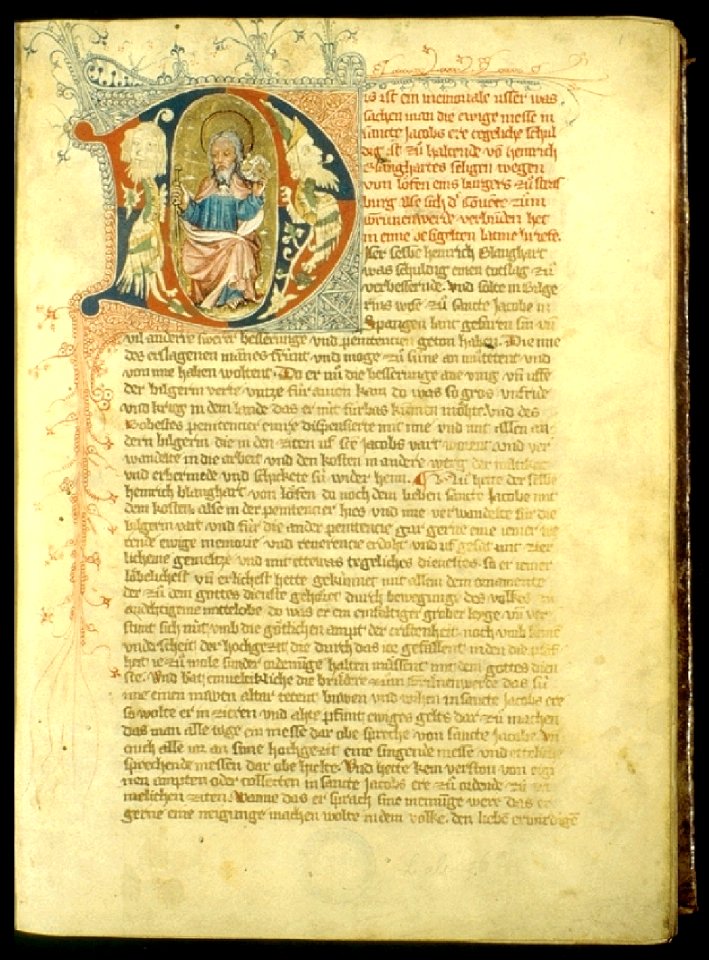 Dis ist ein memoriale user was
sachen man die ewige messe in
sancte Jacobs ere tegeliche schul
dig ist zů haltende võ heinrich
Blanghartes seligen wegen
von lofen eins burgers zů stras
burg Alse sich d' Cõuẽte zům
Grůnenwerde verbunden het
in eime besigelten latine briefe.
Der selbe heinrich Blanghart
was schuldig einen totslag zů
verbesserende. vnd solte in Bilge
rins wise zů sancte Jacobe in
Spangen lant gefaren sin vñ
vil andere swere besserunge vnd penitencien geton haben. Die ime
des erslagenen mannes frúnt vnd moge zů sůne an můtetent vnd
von ime haben woltent. Do er nů die besserunge ane ving vñ uffe
der bilgerin verte vntze für kam do was so gros vnfride
vnd krieg in dem lande das er nit fürbas kůmen moht vnd des
Bobestes penitencier einre dispensierte mit ime vnd mit allen an
dern bilgerin die in den ziten uf sct Jacobs vart worent vnd ver
wandelte in die arbeit vnd den kosten in andere werg der
vnd erbermede vnd schickete sú wider heim. ¶ Nů hette der selbe
heinrich blanghart von lofen do noch dem lieben sancte Jacobe mit
dem kosten. alse in der penitencier hies vnd ime verwandelte für die
bilgerin vart vnd für die ander penitencie gar gerne eine iemer we
rende ewige memorie vnd reuerencie erdoht vnd uf gesat mit zier
licheme gemúltze vnd mit ettewas tegeliches dienstes. so er iemer
lobelichest vñ erlichest hette gekúnnet mit allem dem ornamente
der zů dem gottes dienste gehöret durch bewegunge des volkes zů
andehtigeme mittelobe do was er ein einfaltiger grober leyge. vñ ver
stunt sich nút vmb die götlichen ampt der cristenheit noch vmb keine
vnderscheit der hochgezit die durch das ior gefallent in den die pfaf
heit ie zů mole sunder ordenunge halten můssent mit dem gottes dien
ste. Vnd bat emtekliche die brůdere zům Grůnenwerde das sú
ime einen nuwen altar retent buwen vnd wihen in sancte Jacobs ere
so wolte er in zieren vnd ahte pfunt ewiges gelts dar zů machen
das man alle tage ein messe dar obe spreche von sancte Jacobe. Vñ
ouch alle ior an sime hochgezit eine singende messe vnd etteliche
sprechende messen dar obe hielte. Vnd hette kein verston von eige
nen ampten oder collecten in sancte Jacobs ere zů ordende zů
melichen ziten. Wanne das er sprach sine meinunge were das er
gerne eine neigunge machen wolte in dem volke. den lieben erwirdigē